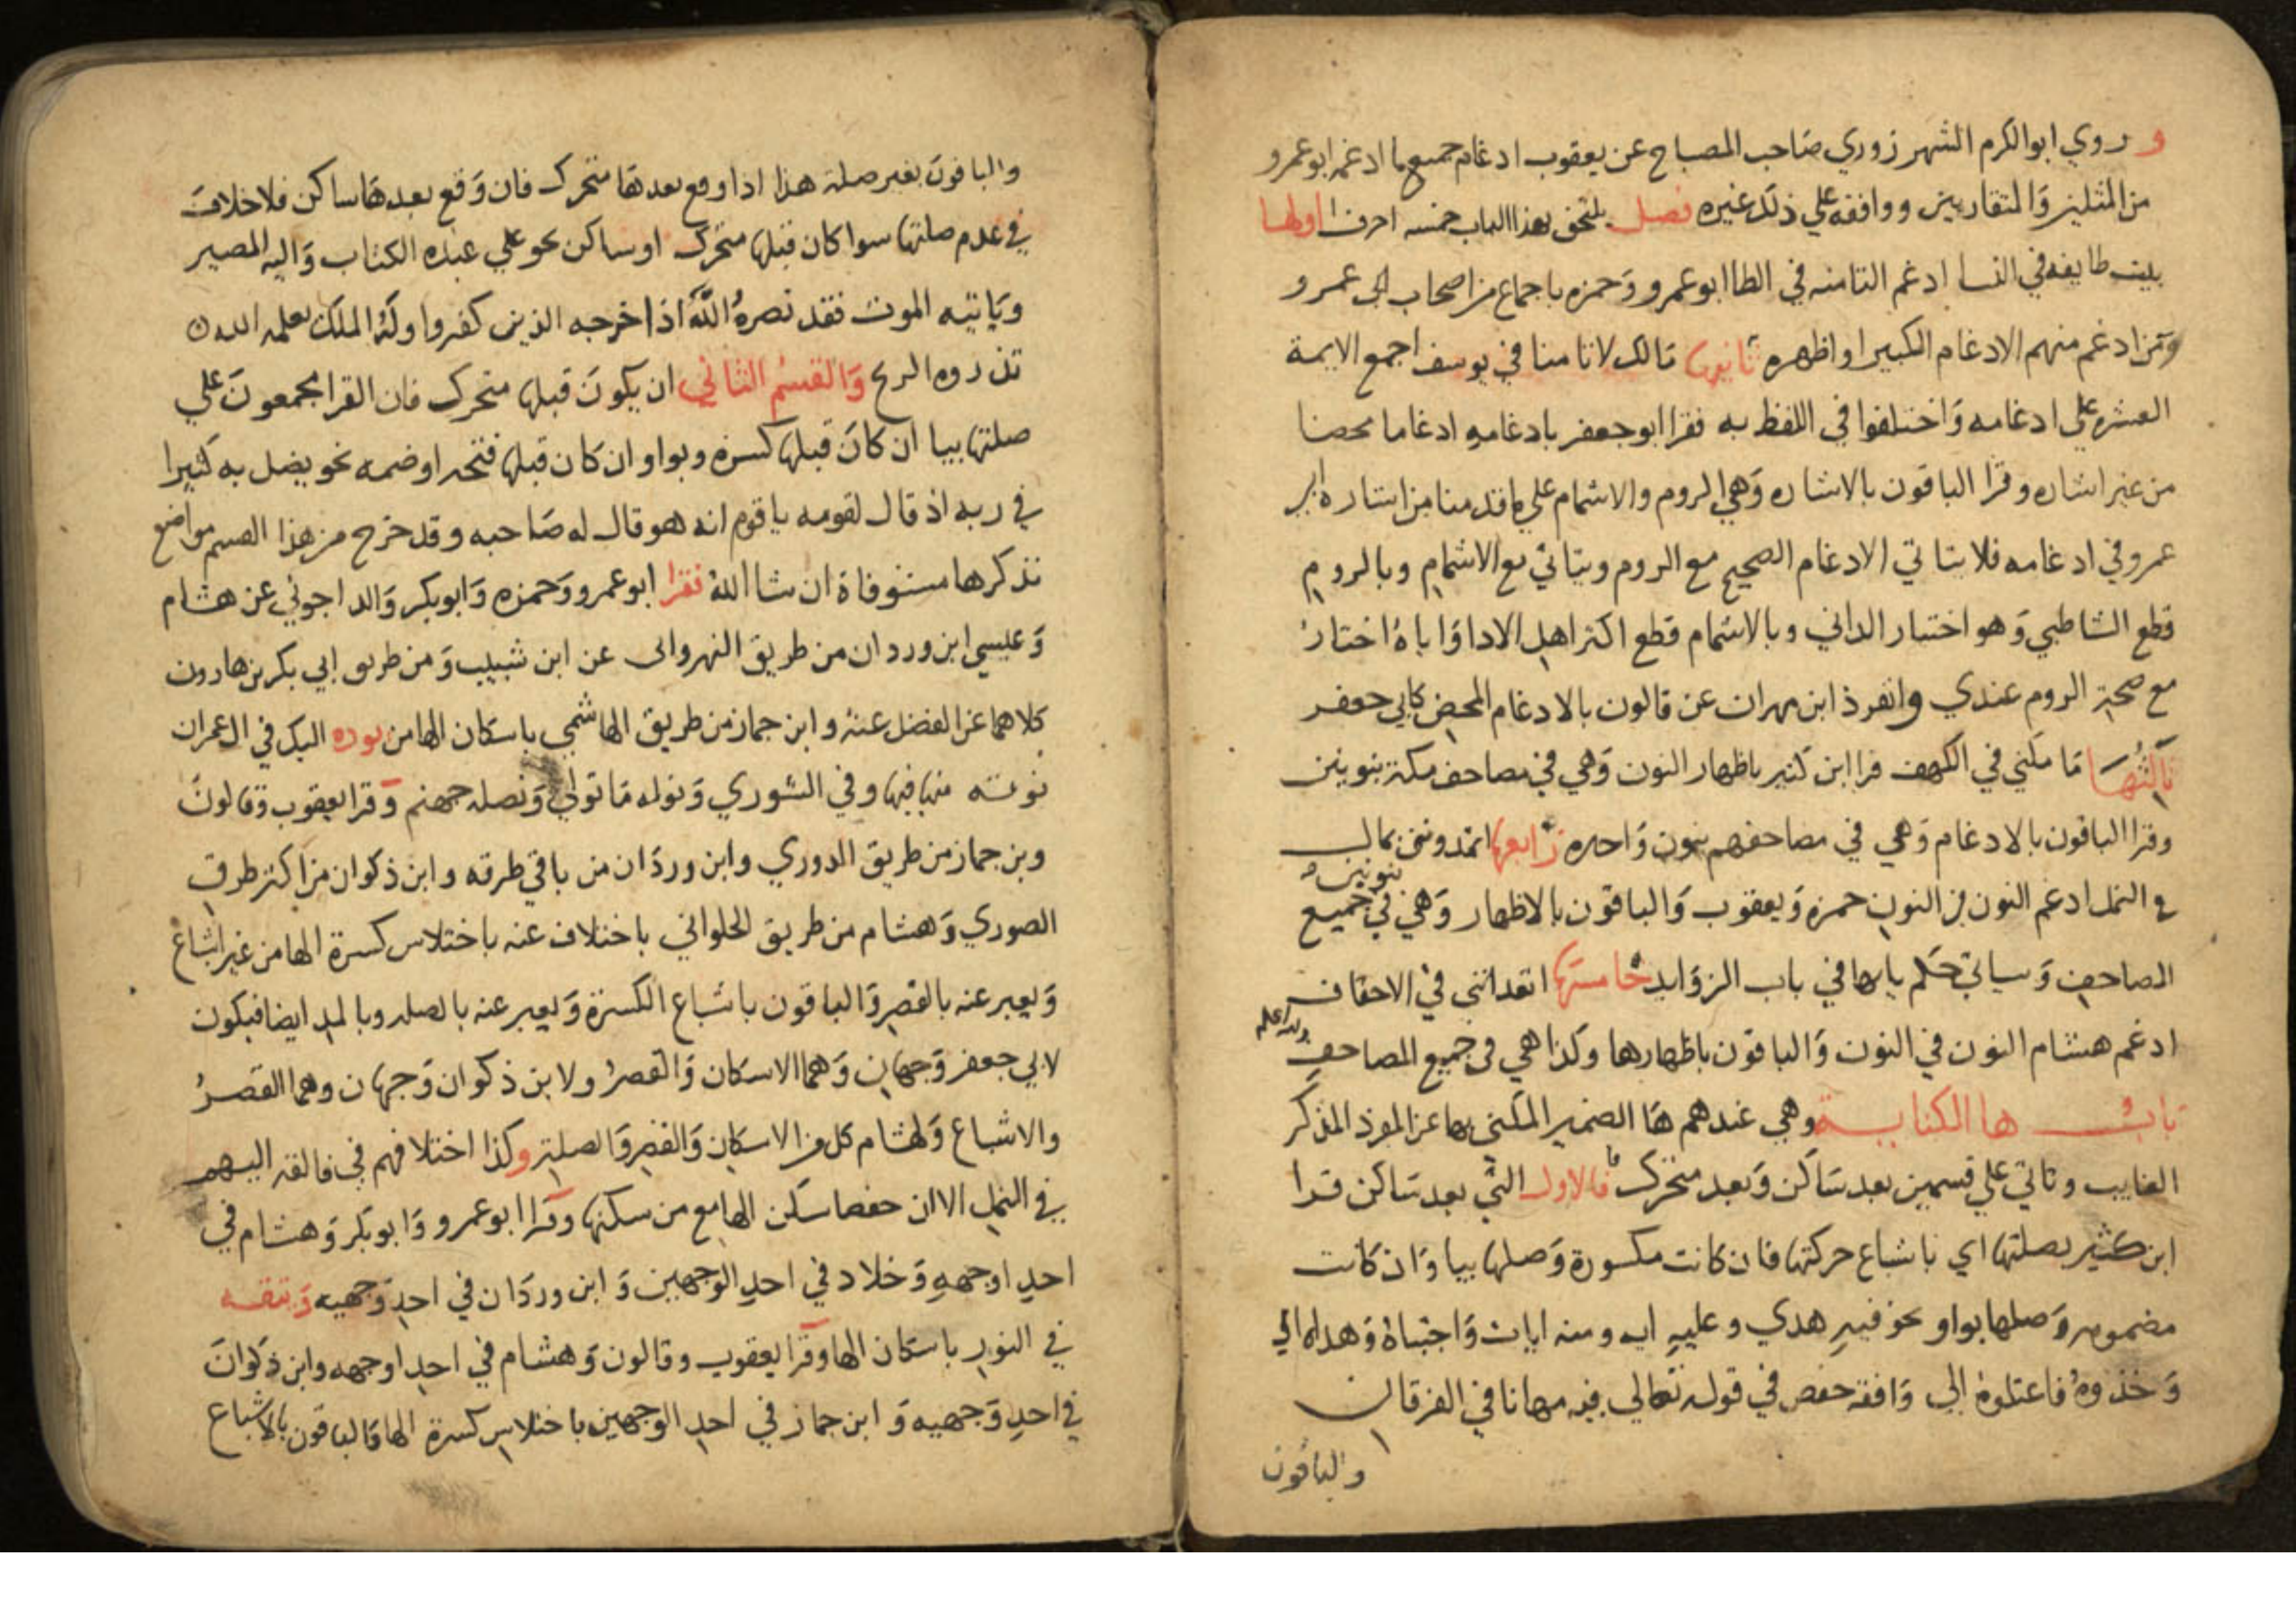 وروي ابو الكرم الشهرزوري صاحب المصباح عن يعقوب ادغام جميع ما ادغمه ابو عمرو
من المثلين والمتقاربين ووافقه علي ذلك غيره فصل يلتحق بهذا الباب خمسه احرف اولها
بيت طايفه في النسا ادغم التا منه في الطا ابو عمرو وحمزه باجماع من اصحاب ابي عمرو
ومن ادغم منهم الادغام الكبير او اظهره ثانيها مالك لا تامنا في يوسف اجمع الايمة
العشره علي ادغامه واختلفوا في اللفظ به فقرا ابو جعفر بادغامه ادغاما محضا
من غير اشاره وقرا الباقون بالاشاره وهي الروم والاشمام علي ما قدمنا من اشاره ابي
عمرو في ادغامه فلا يتاتي الادغام الصحيح مع الروم ويتاتي مع الاشمام وبالروم
قطع الشاطبي وهو اختيار الداني وبالاشمام قطع اكثر اهل الادا واياه اختار
مع صحة الروم عندي وانفرد ابن مهران عن قالون بالادغام المحض كابي جعفر
ثالثها ما مكني في الكهف قرا ابن كثير باظهار النون وهي في مصاحف مكة بنونين
وقرا الباقون بالادغام وهي في مصاحفهم بنون واحده رابعها اتمدونن بمال
في النمل ادغم النون في النون حمزه ويعقوب والباقون بالاظهار وهي بنونين في جميع
المصاحف وسياتي حكم يايها في باب الزوايد خامستها اتعدانني في الاحقاف
ادغم هشام النون في النون والباقون باظهارها وكذا هي في جميع المصاحف والله اعلم
باب ها الكناية وهي عندهم ها الضمير المكني بها عن المفرد المذكر
الغايب وتاتي علي قسمين بعد ساكن وبعد متحرك فالاول التي بعد ساكن قرا
ابن كثير بصلتها اي باشباع حركتها فان كانت مكسورة وصلها بيا وان كانت
مضمومه وصلها بواو نحو فيه هدي وعليه ايه ومنه ايات واجتباه وهداه الي
وخذوه فاعتلوه الي وافقه حفص في قوله تعالي فيه مهانا في الفرقان
والباقون
والباقون بغير صلة هذا اذا وقع بعدها متحرك فان وقع بعدها ساكن فلا خلاف
في عدم صلتها سوا كان قبلها متحرك او ساكن نحو علي عبده الكتاب واليه المصير
وياتيه الموت فقد نصره الله اذ اخرجه الذين كفروا وله الملك يعلمه الله
تذروه الريح والقسم الثاني ان يكون قبلها متحرك فان القرا مجمعون علي
صلتها بيا ان كان قبلها كسره وبواو ان كان قبلها فتحه او ضمه نحو يضل به كثيرا
في ربه اذ قال لقومه يا قوم انه هو قال له صاحبه وقد خرج من هذا القسم مواضع
نذكرها مستوفاة ان شا الله فقرا ابو عمرو وحمزه وابو بكر والداجوني عن هشام
وعيسي ابن وردان من طريق النهرواني عن ابن شبيب ومن طريق ابي بكر بن هارون
كلاهما عن الفضل عنه وابن جماز من طريق الهاشمي باسكان الها من يوده اليك في ال عمران
نوته منها فيها وفي الشوري ونوله ما تولي ونصله جهنم وقرا يعقوب وقالون
وبن جماز من طريق الدوري وابن وردان من باقي طرقه وابن ذكوان من اكثر طرق
الصوري وهشام من طريق الحلواني باختلاف عنه باختلاس كسرة الها من غير اشباع
ويعبر عنه بالقصر والباقون باشباع الكسرة ويعبر عنه بالصله وبالمد ايضا فيكون
لابي جعفر وجهان وهما الاسكان والقصر ولابن ذكوان وجهان وهما القصر
والاشباع ولهشام كل من الاسكان والقصر والصلة وكذا اختلافهم في فالقه اليهم
في النمل الا ان حفصا سكن الها مع من سكنها وقرا ابو عمرو وابو بكر وهشام في
احد اوجهه وخلاد في احد الوجهين وابن وردان في احد وجهيه ويتقه
في النور باسكان الها وقرا يعقوب وقالون وهشام في احد اوجهه وابن ذكوان
في احد وجهيه وابن جماز في احد الوجهين باختلاس كسرة الها والباقون بالاشباع